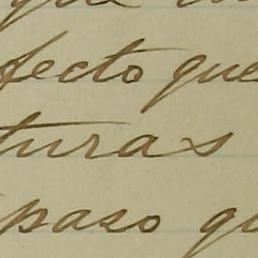 que
fecto que
turas
paso qu